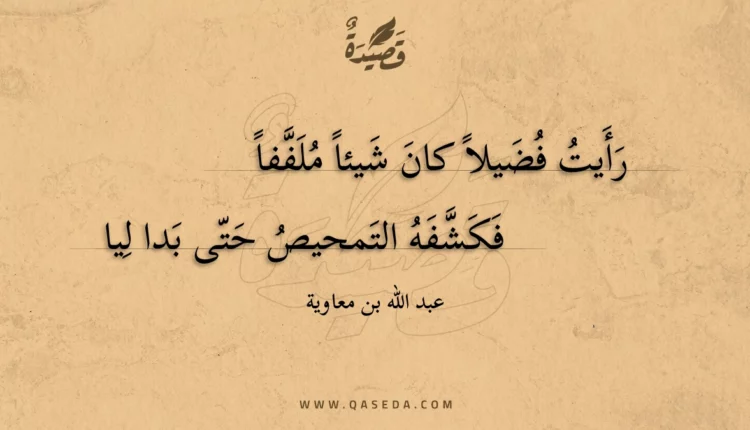 قَصِيْدَةٌ
رَأَيتُ فُضَيلاً كانَ شَيئاً مُلَفَّفاً
فَكَشَّفَهُ التَمحيصُ حَتّى بَدا لِيا
عبد الله بن معاوية
WWW.QASEDA.COM